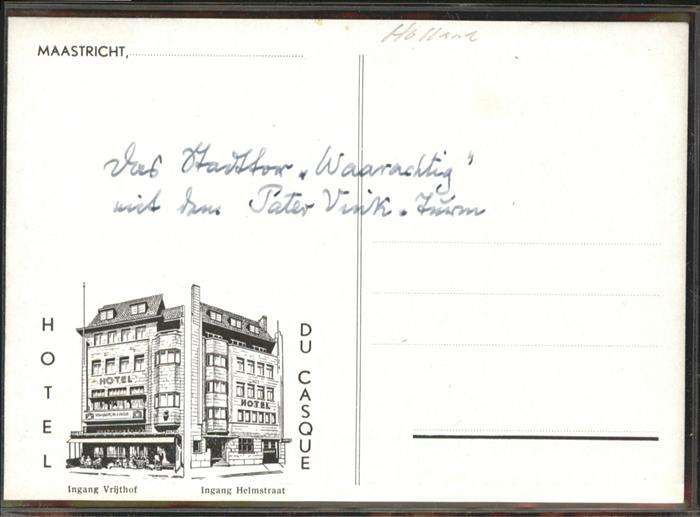 Holland
MAASTRICHT,
Das Stadttor „Waarachtig"
mit dem Pater Vink-Turm
HOTEL
DU CASQUE
HOTEL
HOTEL
Ingang Vrijthof
Ingang Helmstraat